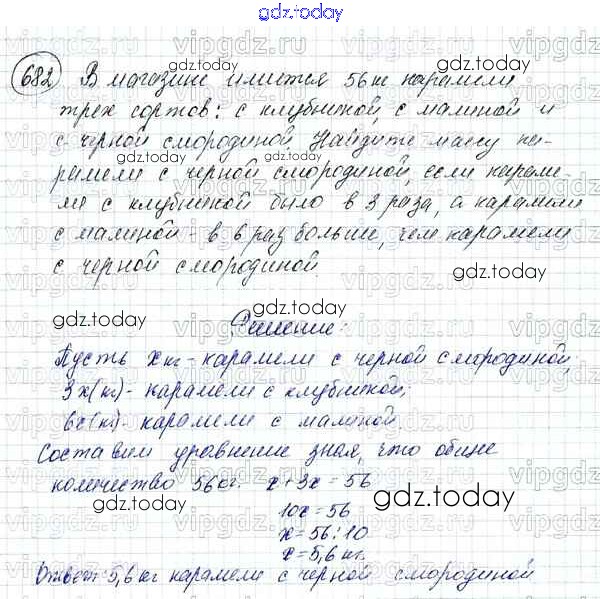 gdz.today
682 В магазине имеется 56 кг карамели
трех сортов: с клубникой, с малиной и
с черной смородиной. Найдите массу ка-
gdz.today
рамели с черной смородиной, если караме-
ли с клубникой было в 3 раза, а карамели
с малиной - в 6 раз больше, чем карамели
с черной смородиной.
gdz.today
gdz.today
Решение:
Пусть х кг - карамели с черной смородиной;
3х(кг) - карамели с клубникой;
6х(кг) - карамели с малиной.
gdz.today
Составим уравнение зная, что общее
количество 56 кг. х + 3х = 56
gdz.today
10х = 56
х = 56 : 10
х = 5,6 кг.
Ответ: 5,6 кг карамели с черной смородиной